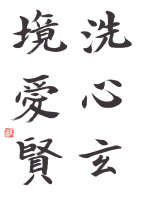 洗心玄
境愛賢